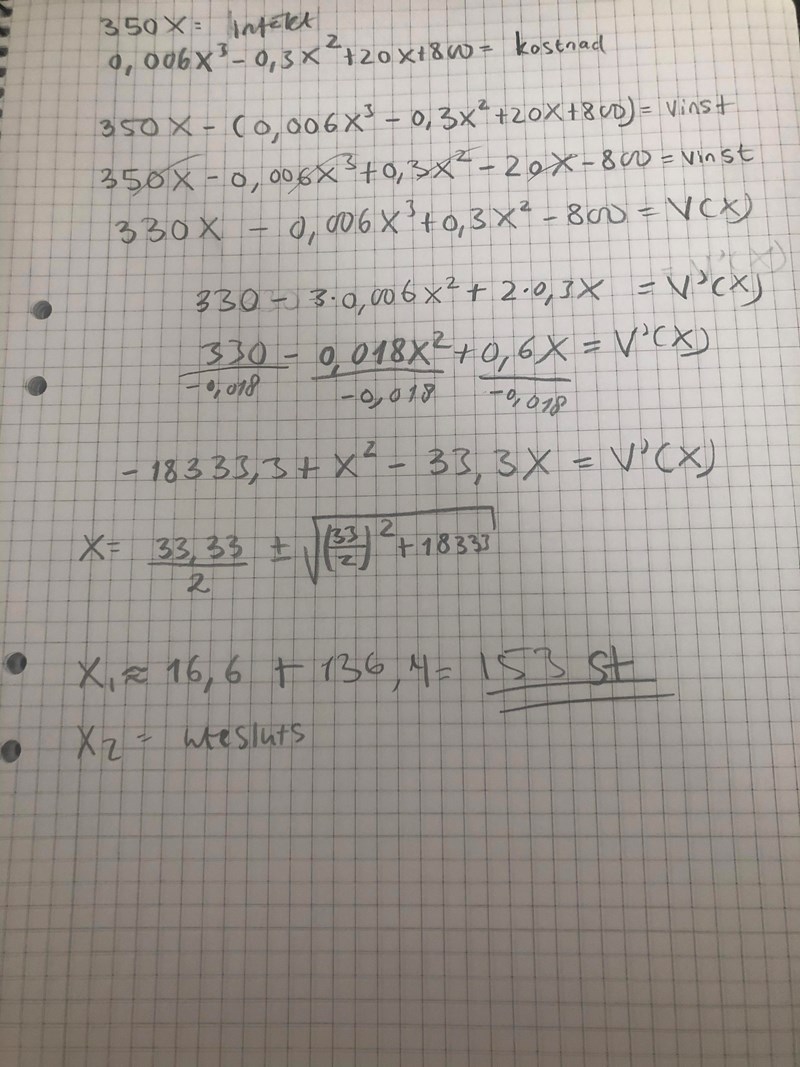 350X = intekt
0,006X³ - 0,3X² + 20X + 800 = kostnad
350X - (0,006X³ - 0,3X² + 20X + 800) = Vinst
350X - 0,006X³ + 0,3X² - 20X - 800 = vinst
330X - 0,006X³ + 0,3X² - 800 = V(X)
330 - 3·0,006X² + 2·0,3X = V'(X)
330 - 0,018X² + 0,6X = V'(X)
-0,018 -0,018 -0,018
-18333,3 + X² - 33,3X = V'(X)
X = 33,33/2 ± √((33/2)² + 18333)
X₁ ≈ 16,6 + 136,4 = 153 st
X₂ = utesluts